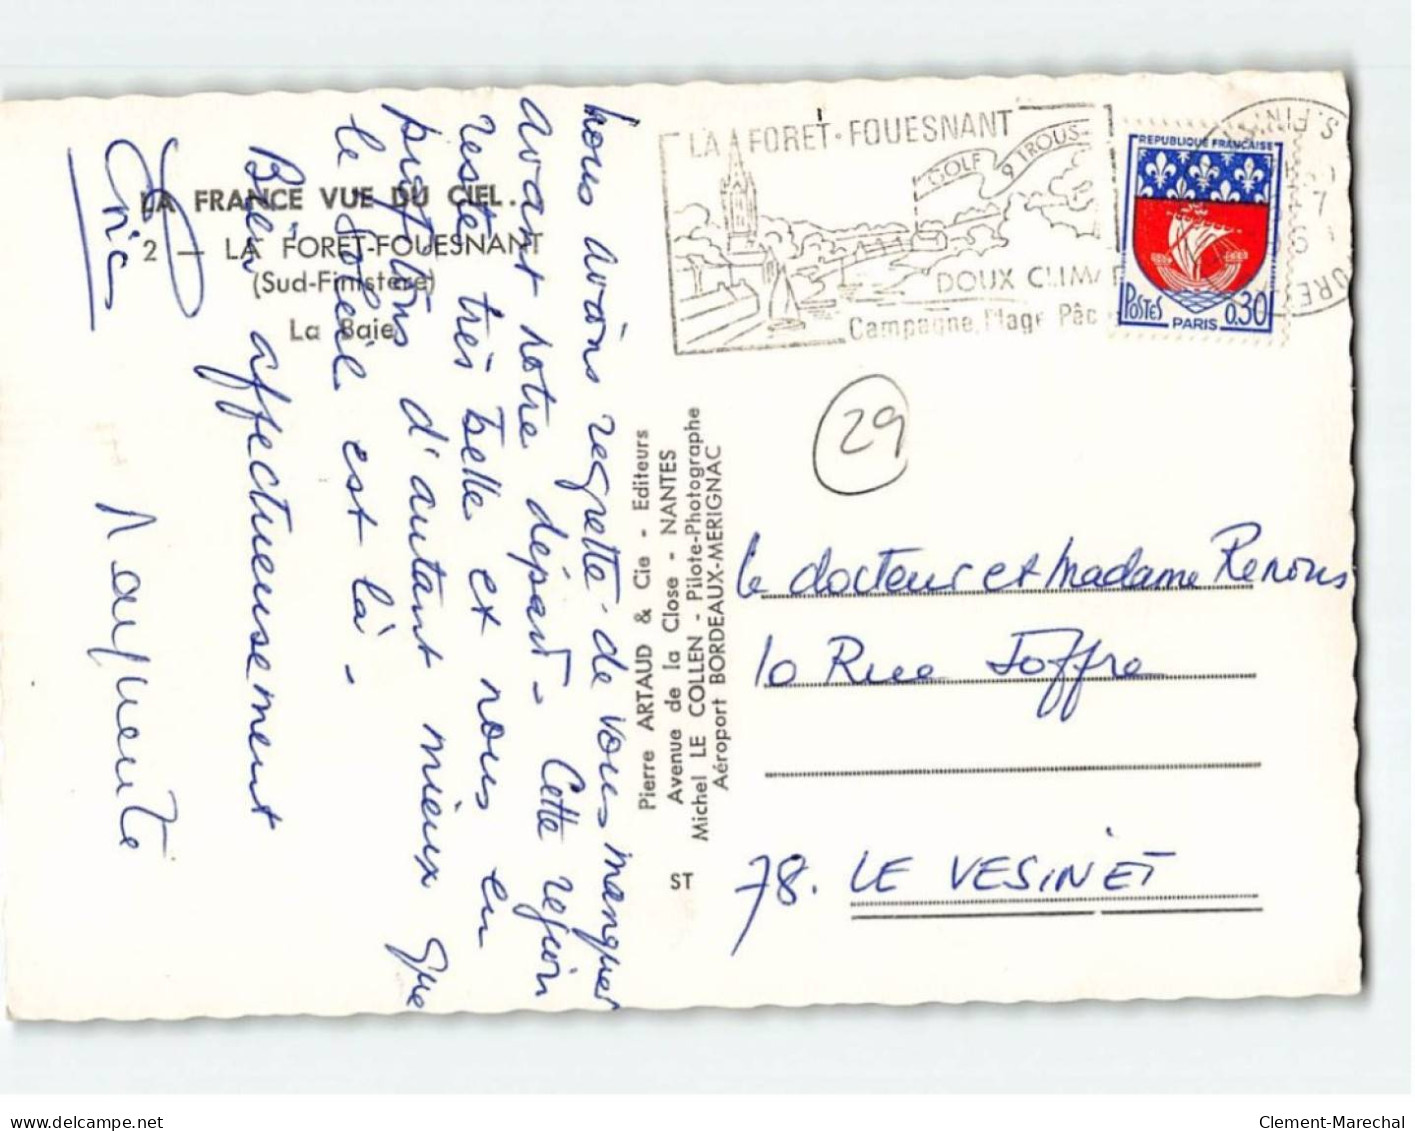 LA FRANCE VUE DU CIEL...
2 — LA FORET-FOUESNANT
(Sud-Finistère)
La Baie
nous avons regretté de vous manquer
avant notre départ - Cette région
reste très belle et nous en
profitons d'autant mieux que
le soleil est là -
Bien affectueusement
Eric
Pierre ARTAUD & Cie - Editeurs
Avenue de la Close - NANTES
Michel LE COLLEN - Pilote-Photographe
Aéroport BORDEAUX-MERIGNAC
ST
LA FORET-FOUESNANT
GOLF 9 TROUS
DOUX CLIMA
Campagne, Plage Pêc
REPUBLIQUE FRANÇAISE
POSTES
PARIS
0,30
S. FIN
29
Le docteur et Madame Renous
10 Rue Joffre
78. LE VESINET
Clement-Marechal
delcampe.net